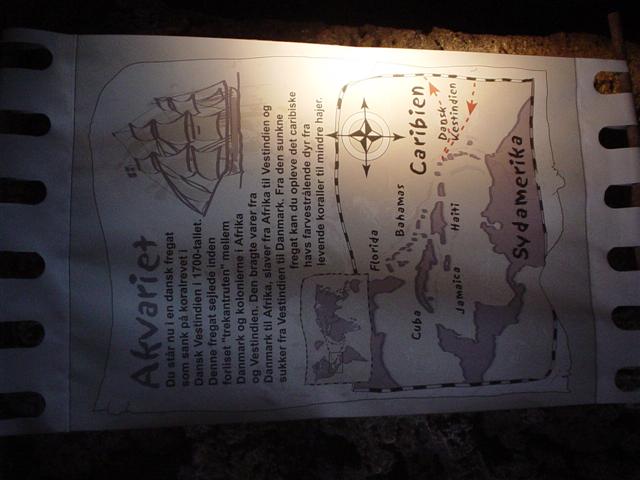 Akvariet
Du står nu i en dansk fregat
som sank på koralrevet i
Dansk Vestindien i 1700-tallet.
Denne fregat sejlede inden
forliset "trekantruten" mellem
Danmark og kolonierne i Afrika
og Vestindien. Den bragte varer fra
Danmark til Afrika, slaver fra Afrika til Vestindien og
sukker fra Vestindien til Danmark. Fra den sunkne
fregat kan du opleve det caribiske
havs farvestrålende dyr fra
levende koraller til mindre hajer.
Florida
Bahamas
Caribien
Cuba
Haiti
Dansk
Vestindien
Jamaica
Sydamerika